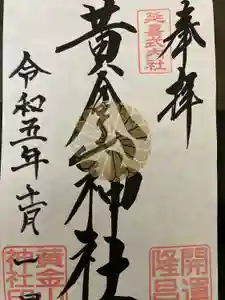 奉拝
延喜式内社
開運
隆昌
黄金山神社
令和五年十一月一日
黄金山
神社